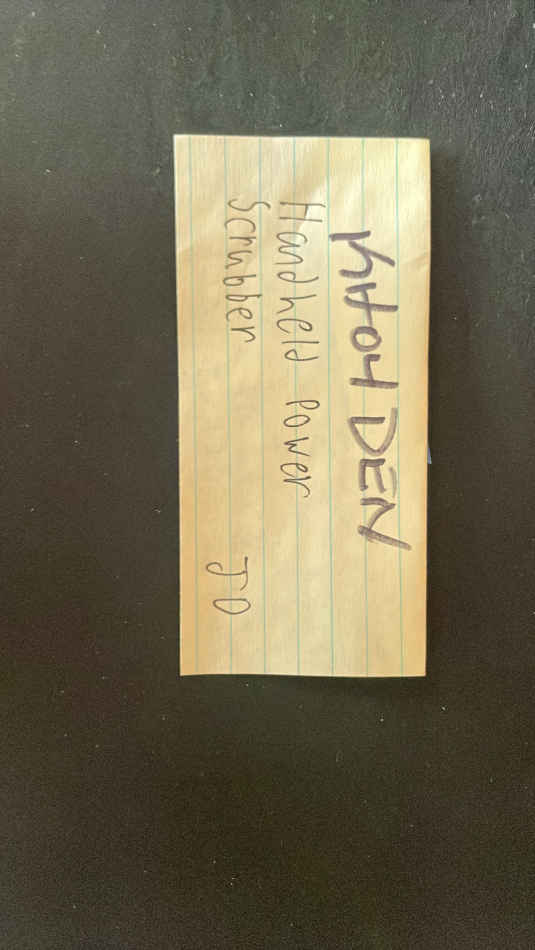 KHOY DEN
Handheld Power
Scrubber
JO